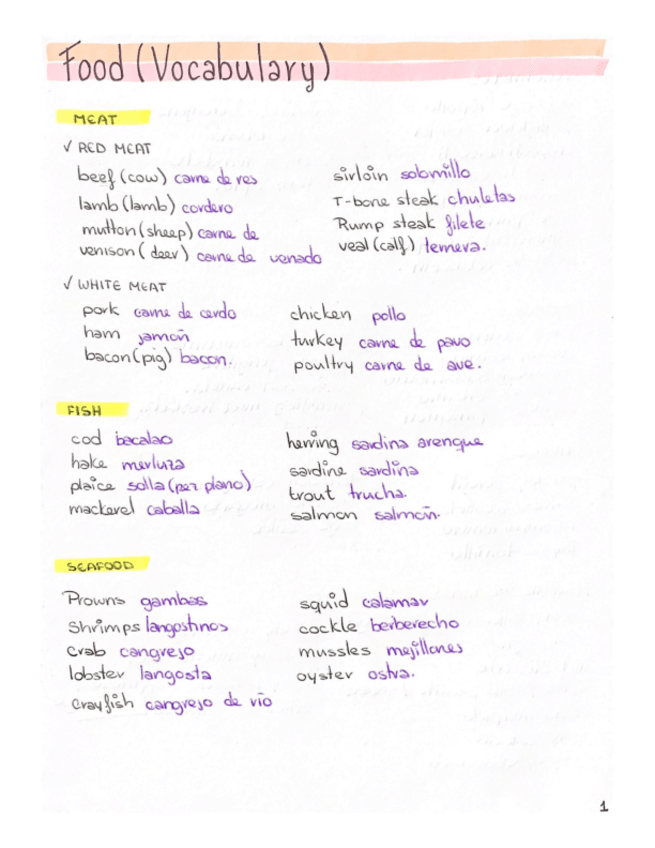 Food (Vocabulary)
MEAT
✓ RED MEAT
beef (cow) carne de res
lamb (lamb) cordero
mutton (sheep) carne de
venison (deer) carne de venado
sirloin solomillo
T-bone steak chuletas
Rump steak filete
veal (calf) ternera.
✓ WHITE MEAT
pork carne de cerdo
ham jamón
bacon (pig) bacon.
chicken pollo
turkey carne de pavo
poultry carne de ave.
FISH
cod bacalao
hake merluza
plaice solla (pez plano)
mackerel caballa
herring sardina arenque
sardine sardina
trout trucha.
salmon salmón.
SEAFOOD
Prowns gambas
Shrimps langostinos
Crab cangrejo
lobster langosta
Crayfish cangrejo de río
squid calamar
cockle berberecho
mussles mejillones
oyster ostra.
1